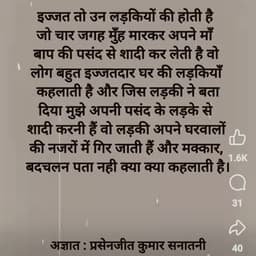 इज्जत तो उन लड़कियों की होती है
जो चार जगह मुँह मारकर अपने माँ
बाप की पसंद से शादी कर लेती है वो
लोग बहुत इज्जतदार घर की लड़कियाँ
कहलाती है और जिस लड़की ने बता
दिया मुझे अपनी पसंद के लड़के से
शादी करनी हैं वो लड़की अपने घरवालों
की नजरों में गिर जाती हैं और मक्कार,
बदचलन पता नही क्या क्या कहलाती है।
1.6K
31
अज्ञात : प्रसेनजीत कुमार सनातनी
40